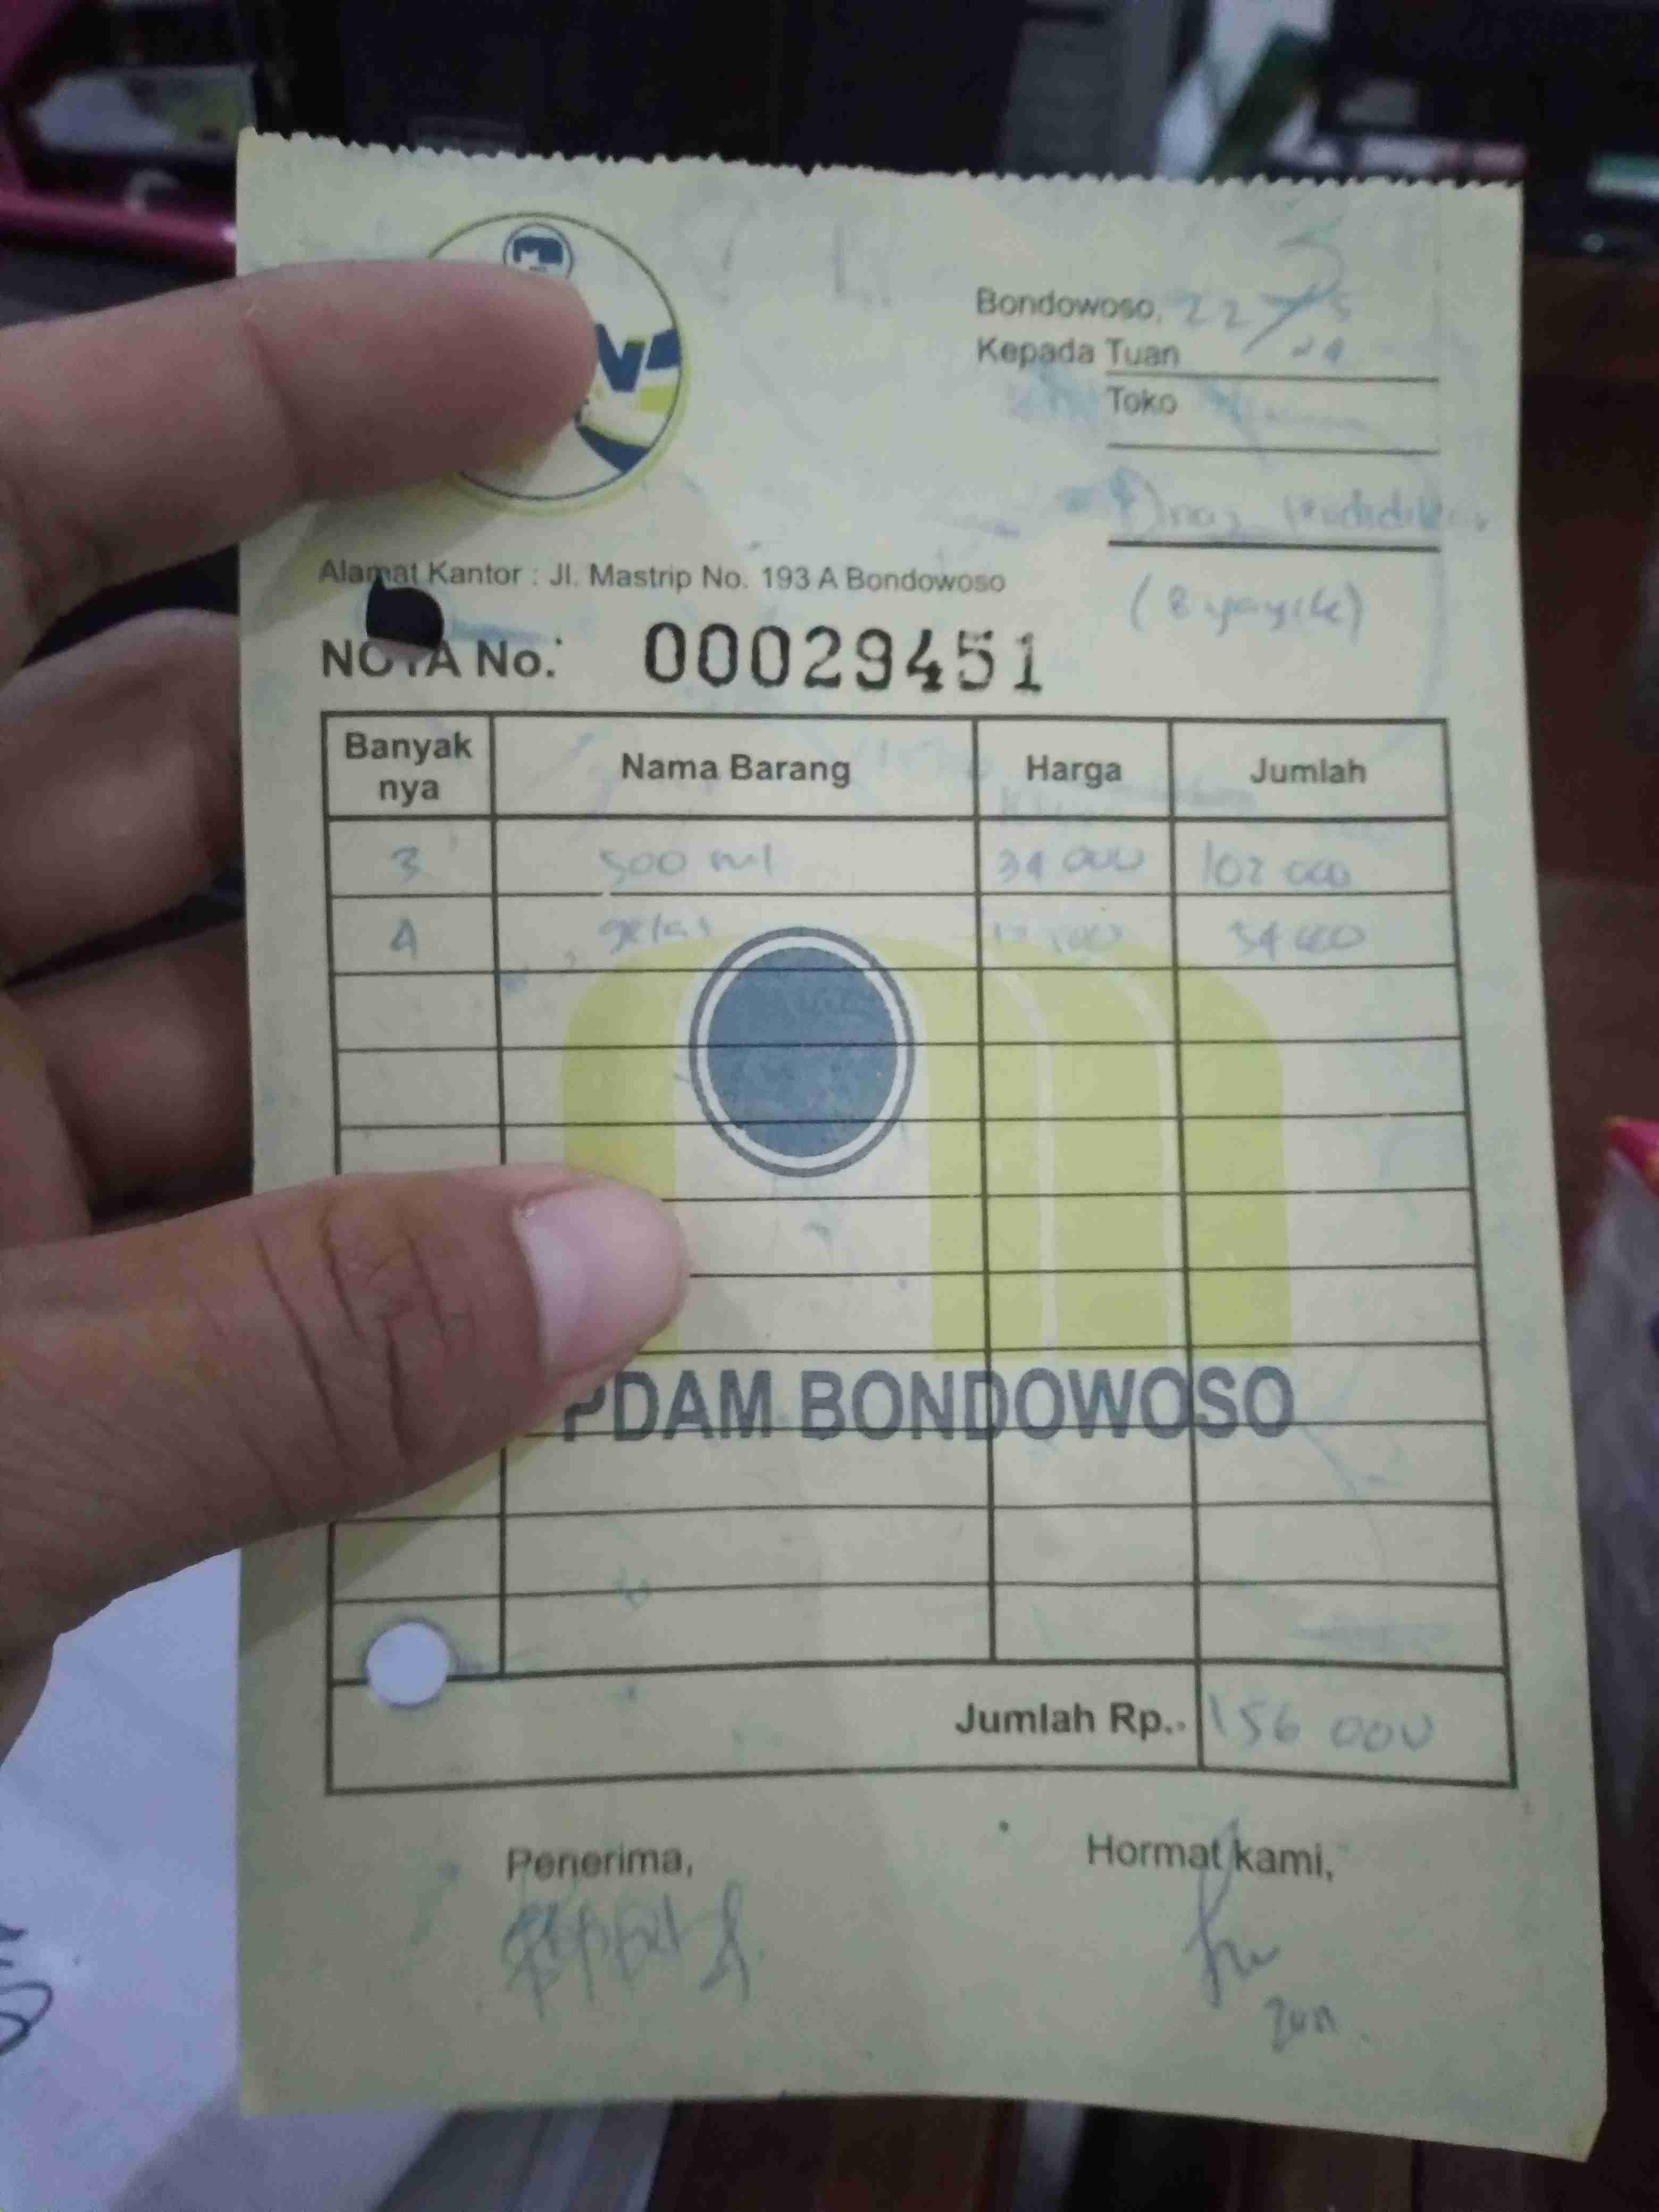 Bondowoso, 22/5
Kepada Tuan
Toko
Dinas Pendidikan
Alamat Kantor : Jl. Mastrip No. 193 A Bondowoso
NOTA No. 00029451
Banyak nya Nama Barang Harga Jumlah
3 500 ml 34 000 102 000
4 gelas 54 000
PDAM BONDOWOSO
Jumlah Rp. 156 000
Penerima, Hormat kami,